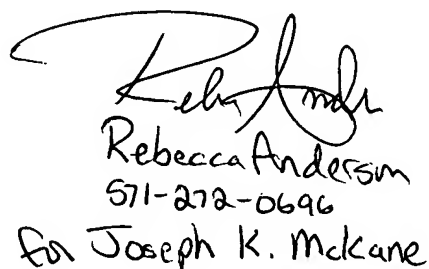 Rebecca Anderson
571-272-0696
for Joseph K. McKane